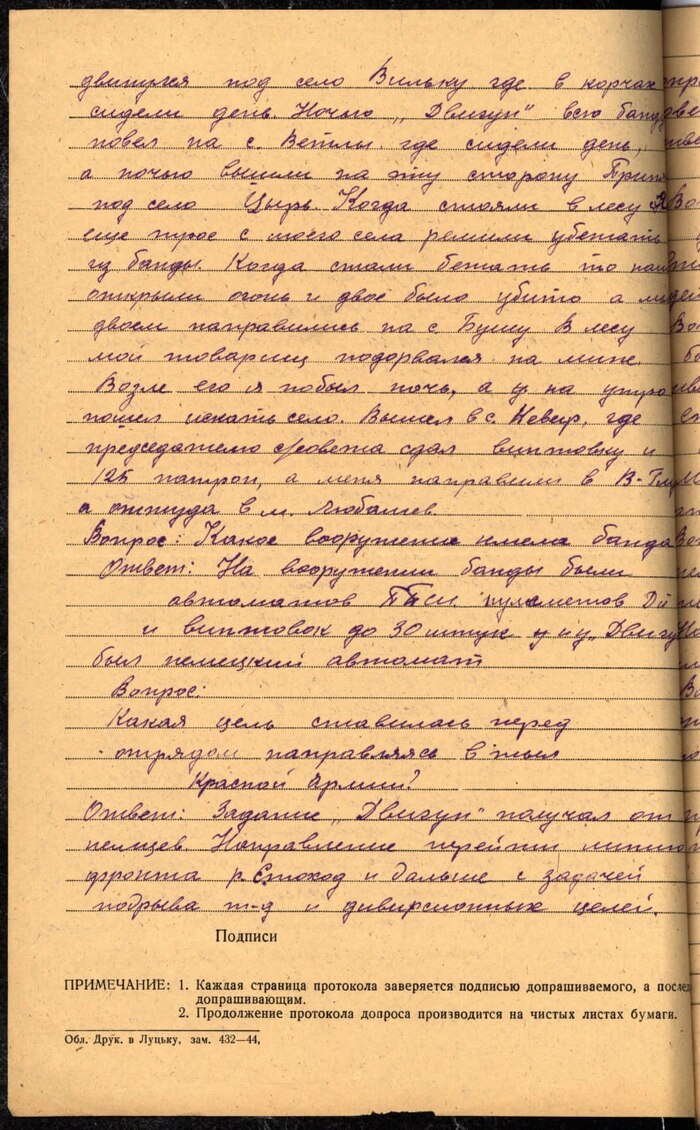 двинулся под село Вильку где в корчах
сидели день. Ночью „Двигун" всю банду
повел на с. Ветлы. где сидели день,
а ночью вышли на ту сторону Прип
под село Цырь. Когда стояли в лесу я
еще трое с моего села решили убежать
из банды. Когда стали бежать то нам
открыли огонь и двое было убито а мы
двоем направились на с. Бушу В лесу
мой товарищ подорвался на мине.
Возле его я побыл ночь, а у на утро
пошел искать село. Вышел в с. Невир, где
председателю совета сдал винтовку и
125 патрон, а меня направили в В-Глу
а оттуда в м. Любашев.
Вопрос: Какое вооружение имела банда
Ответ: На вооружении банды были
автоматов ППШ пулеметов Д
и винтовок до 30 штук у ку „Двигу
был немецкий автомат
Вопрос:
Какая цель ставилась перед
отрядом направляясь в тыл
Красной Армии?
Ответ: Задание „Двигун" получал от
немцев. Направление перейти линию
фронта р. Стоход и дальше с задачей
подрыва ж-д и дивирсионных целей.
Подписи
ПРИМЕЧАНИЕ: 1. Каждая страница протокола заверяется подписью допрашиваемого, а послед
допрашивающим.
2. Продолжение протокола допроса производится на чистых листах бумаги.
Обл. Друк. в Луцьку, зам. 432—44,